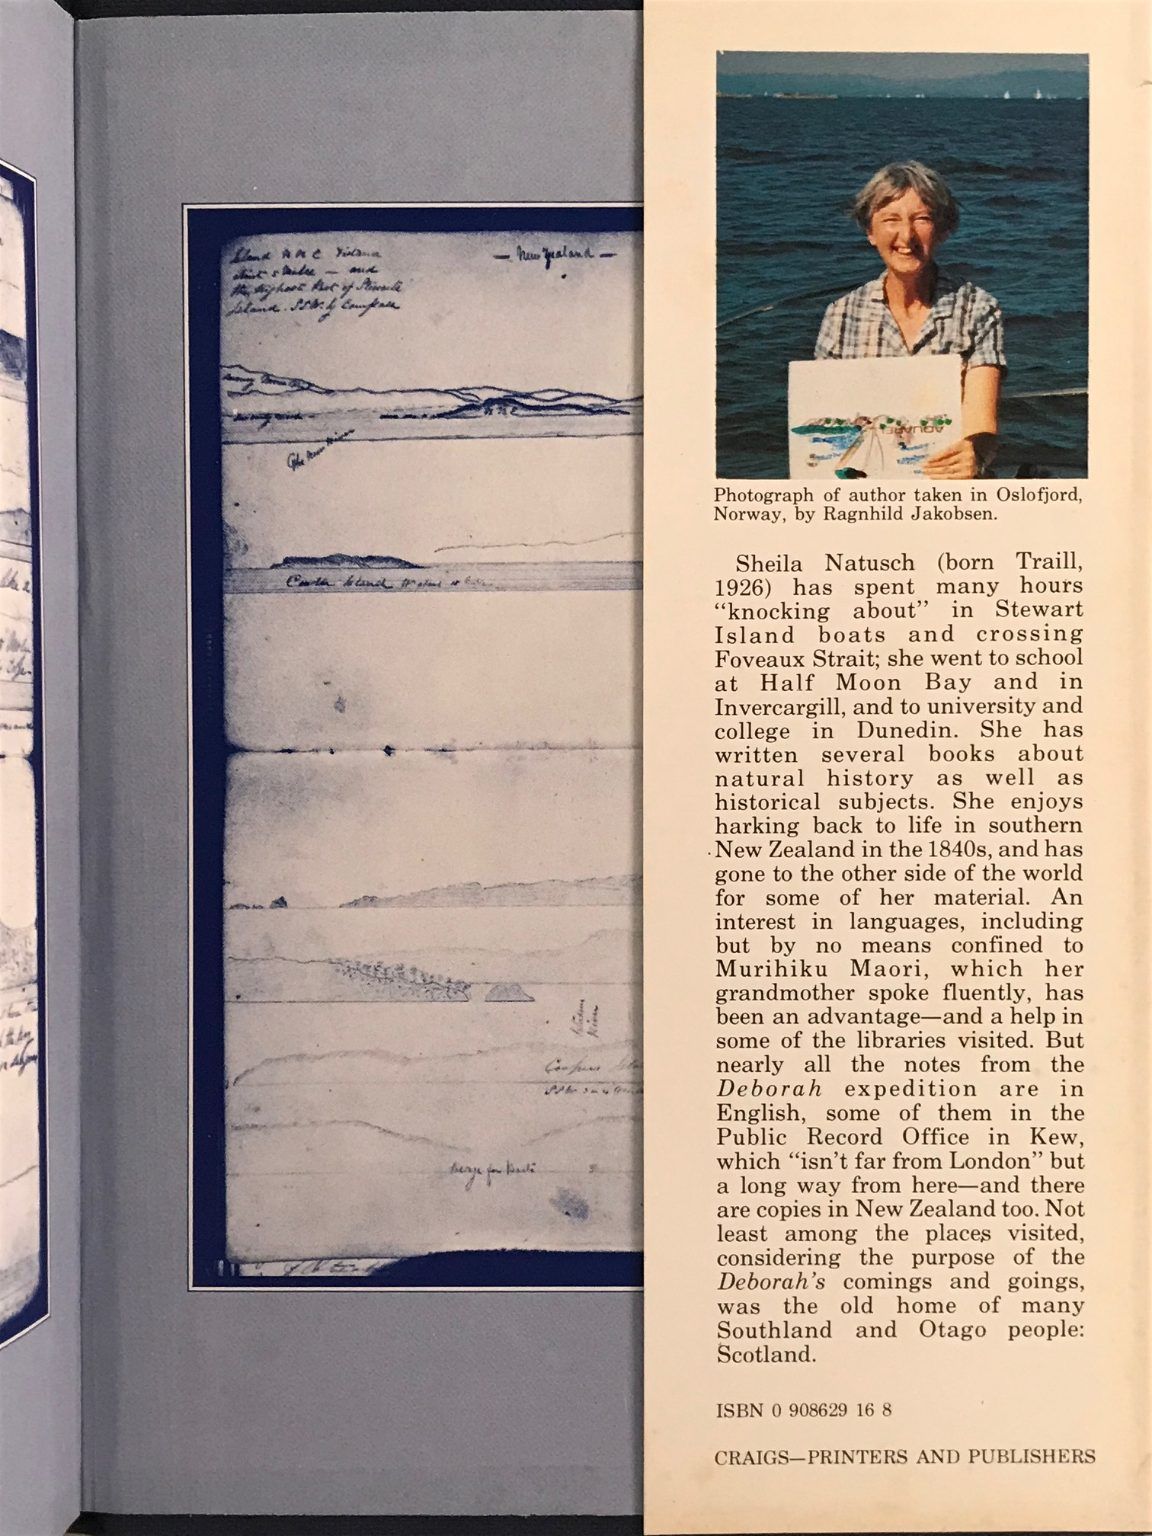 — New Zealand —
Island S.S.W. by Compass
Island
Photograph of author taken in Oslofjord,
Norway, by Ragnhild Jakobsen.
Sheila Natusch (born Traill,
1926) has spent many hours
“knocking about” in Stewart
Island boats and crossing
Foveaux Strait; she went to school
at Half Moon Bay and in
Invercargill, and to university and
college in Dunedin. She has
written several books about
natural history as well as
historical subjects. She enjoys
harking back to life in southern
New Zealand in the 1840s, and has
gone to the other side of the world
for some of her material. An
interest in languages, including
but by no means confined to
Murihiku Maori, which her
grandmother spoke fluently, has
been an advantage—and a help in
some of the libraries visited. But
nearly all the notes from the
Deborah expedition are in
English, some of them in the
Public Record Office in Kew,
which “isn't far from London” but
a long way from here—and there
are copies in New Zealand too. Not
least among the places visited,
considering the purpose of the
Deborah's comings and goings,
was the old home of many
Southland and Otago people:
Scotland.
ISBN 0 908629 16 8
CRAIGS—PRINTERS AND PUBLISHERS